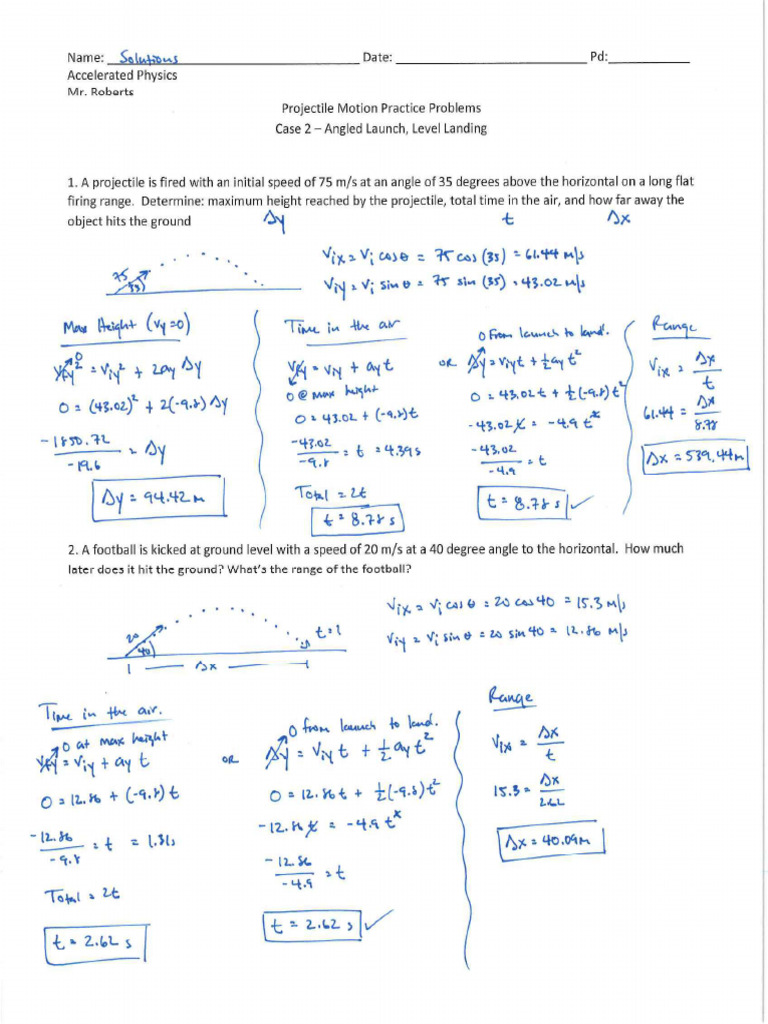 Name: Solutions Date: Pd:
Accelerated Physics
Mr. Roberts
Projectile Motion Practice Problems
Case 2 – Angled Launch, Level Landing
1. A projectile is fired with an initial speed of 75 m/s at an angle of 35 degrees above the horizontal on a long flat
firing range. Determine: maximum height reached by the projectile, total time in the air, and how far away the
object hits the ground Δy t Δx
75
35
Vix = Vi cosθ = 75 cos (35) = 61.44 m/s
Viy = Vi sinθ = 75 sin (35) = 43.02 m/s
Max Height (Vy=0)
0
Vfy² = Viy² + 2ay Δy
0 = (43.02)² + 2(-9.8) Δy
-1850.72 / -19.6 = Δy
Δy = 94.42 m
Time in the air
Vfy = Viy + ayt
0 @ max height
0 = 43.02 + (-9.8)t
-43.02 / -9.8 = t = 4.39s
Total = 2t
t = 8.78 s
0 From launch to land.
OR Δy = Viyt + ½ayt²
0 = 43.02t + ½(-9.8)t²
-43.02t = -4.9t²
-43.02 / -4.9 = t
t = 8.78 s ✓
Range
Vix = Δx / t
61.44 = Δx / 8.78
Δx = 539.44m
2. A football is kicked at ground level with a speed of 20 m/s at a 40 degree angle to the horizontal. How much
later does it hit the ground? What's the range of the football?
20
40
t=?
Δx
Vix = Vi cosθ = 20 cos40 = 15.3 m/s
Viy = Vi sinθ = 20 sin40 = 12.86 m/s
Time in the air.
0 at max height
Vfy = Viy + ay t
0 = 12.86 + (-9.8) t
-12.86 / -9.8 = t = 1.31s
Total = 2t
t = 2.62 s
0 from launch to land.
OR Δy = Viy t + ½ ay t²
0 = 12.86t + ½(-9.8)t²
-12.86t = -4.9t²
-12.86 / -4.9 = t
t = 2.62 s ✓
Range
Vix = Δx / t
15.3 = Δx / 2.62
Δx = 40.09m